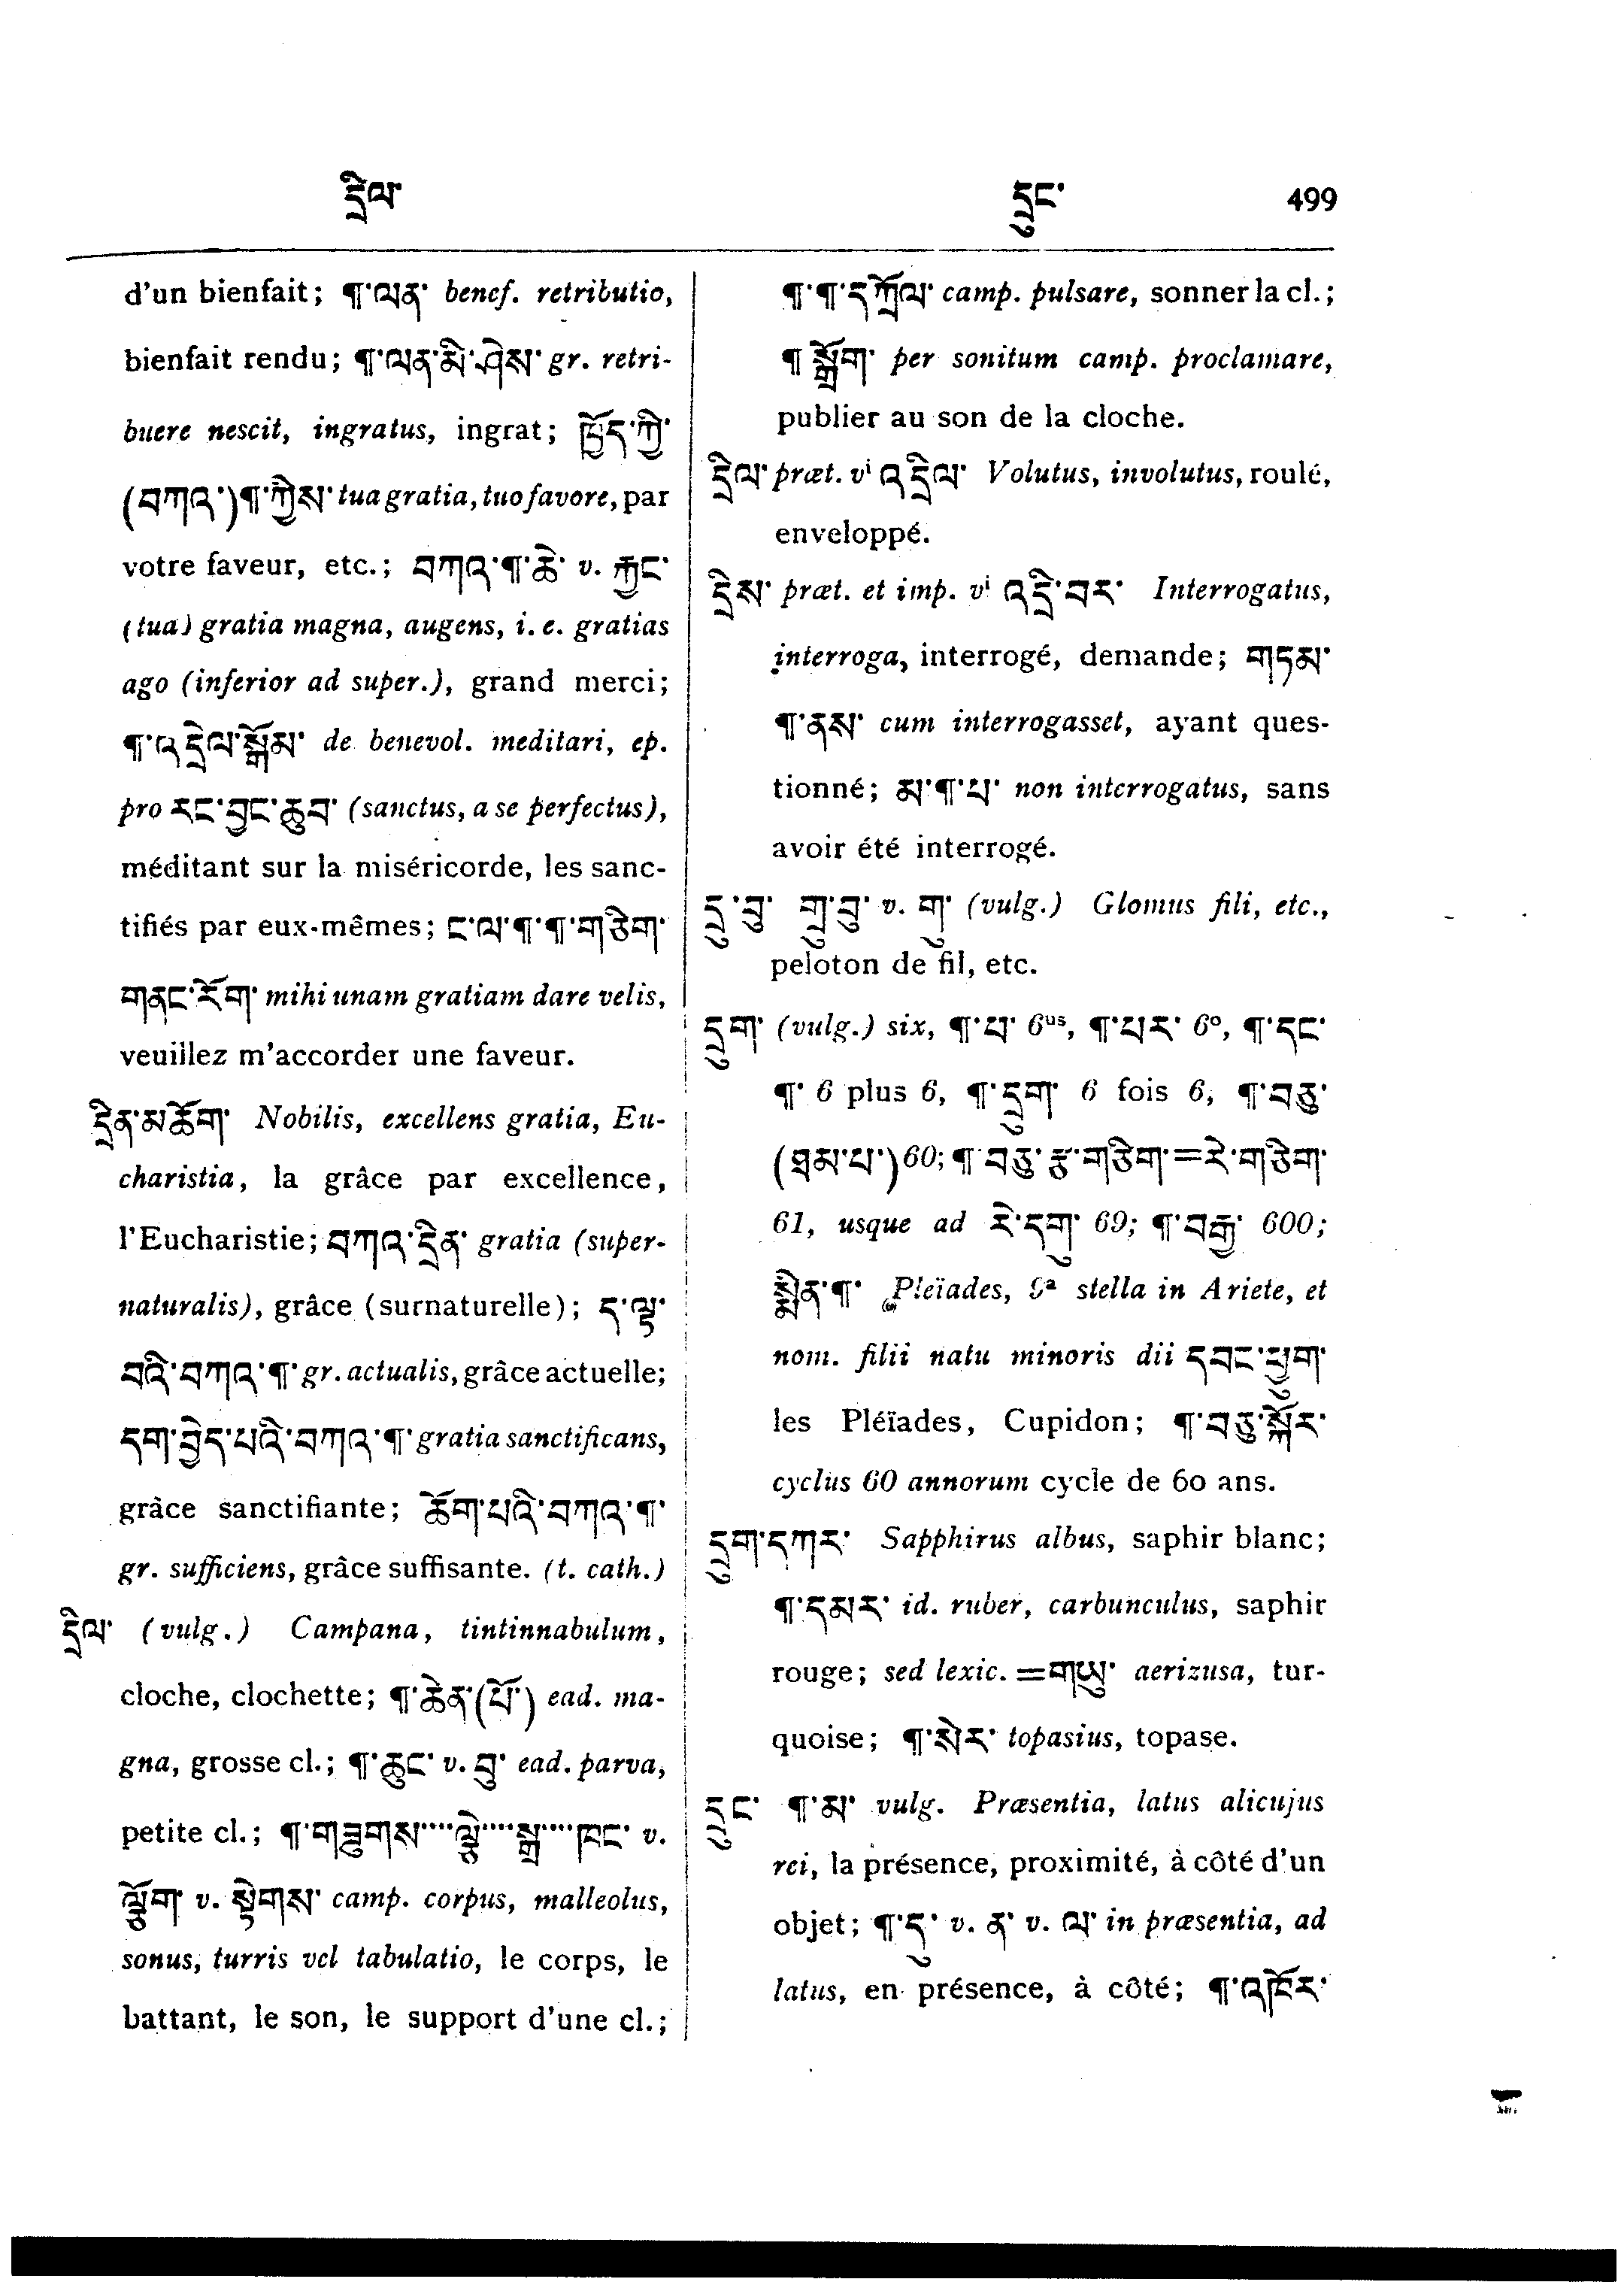 དྲིལ་ དྲུང་ 499
d'un bienfait; ¶་ལན་ benef. retributio,
bienfait rendu; ¶་ལན་མི་ཤེས་ gr. retri-
buere nescit, ingratus, ingrat; ཁྱོད་ཀྱི་
(བཀའ་)¶་ཀྱིས་ tua gratia, tuo favore, par
votre faveur, etc.; བཀའ་¶་ཆེ་ v. རྒྱང་
(tua) gratia magna, augens, i. e. gratias
ago (inferior ad super.), grand merci;
¶་འདྲེལ་སྒོམ་ de benevol. meditari, ep.
pro རང་བྱང་ཆུབ་ (sanctus, a se perfectus),
méditant sur la miséricorde, les sanc-
tifiés par eux-mêmes; ང་ལ་¶་¶་གཅིག་
གནང་རོག་ mihi unam gratiam dare velis,
veuillez m'accorder une faveur.
དྲིན་མཆོག་ Nobilis, excellens gratia, Eu-
charistia, la grâce par excellence,
l'Eucharistie; བཀའ་དྲིན་ gratia (super-
naturalis), grâce (surnaturelle); ད་ལྟ་
བའི་བཀའ་¶་ gr. actualis, grâce actuelle;
དག་བྱེད་པའི་བཀའ་¶་ gratia sanctificans,
grâce sanctifiante; ཆོག་པའི་བཀའ་¶་
gr. sufficiens, grâce suffisante. (t. cath.)
དྲིལ་ (vulg.) Campana, tintinnabulum,
cloche, clochette; ¶་ཆེན་(པོ་) ead. ma-
gna, grosse cl.; ¶་ཆུང་ v. བུ་ ead. parva,
petite cl.; ¶་གཟུགས་····ལྕེ་····སྒྲ་····ཁང་ v.
ལྕོག་ v. སྟེགས་ camp. corpus, malleolus,
sonus, turris vel tabulatio, le corps, le
battant, le son, le support d'une cl.;
¶་¶་དཀྲོལ་ camp. pulsare, sonner la cl.;
¶ སྒྲོག་ per sonitum camp. proclamare,
publier au son de la cloche.
དྲིལ་ præt. vⁱ འདྲིལ་ Volutus, involutus, roulé,
enveloppé.
དྲིས་ præt. et imp. vⁱ འདྲི་བར་ Interrogatus,
interroga, interrogé, demande; གཏམ་
¶་ནས་ cum interrogasset, ayant ques-
tionné; མ་¶་པ་ non interrogatus, sans
avoir été interrogé.
དྲུ་བུ་ གྲུ་བུ་ v. གུ་ (vulg.) Glomus fili, etc.,
peloton de fil, etc.
དྲུག་ (vulg.) six, ¶་པ་ 6ᵘˢ, ¶་པར་ 6º, ¶་དང་
¶་ 6 plus 6, ¶་དྲུག་ 6 fois 6, ¶་བཅུ་
(ཐམ་པ་) 60; ¶་བཅུ་རྩ་གཅིག་=རེ་གཅིག་
61, usque ad རེ་དགུ་ 69; ¶་བརྒྱ་ 600;
སྨིན་¶་ Pleïades, 9ª stella in Ariete, et
nom. filii natu minoris dii དབང་ཕྱུག་
les Pléïades, Cupidon; ¶་བཅུ་སྐོར་
cyclus 60 annorum cycle de 60 ans.
དྲུག་དཀར་ Sapphirus albus, saphir blanc;
¶་དམར་ id. ruber, carbunculus, saphir
rouge; sed lexic. =གཡུ་ aerizusa, tur-
quoise; ¶་སེར་ topasius, topase.
དྲུང་ ¶་མ་ vulg. Præsentia, latus alicujus
rei, la présence, proximité, à côté d'un
objet; ¶་དུ་ v. ན་ v. ལ་ in præsentia, ad
latus, en présence, à côté; ¶་འཁོར་